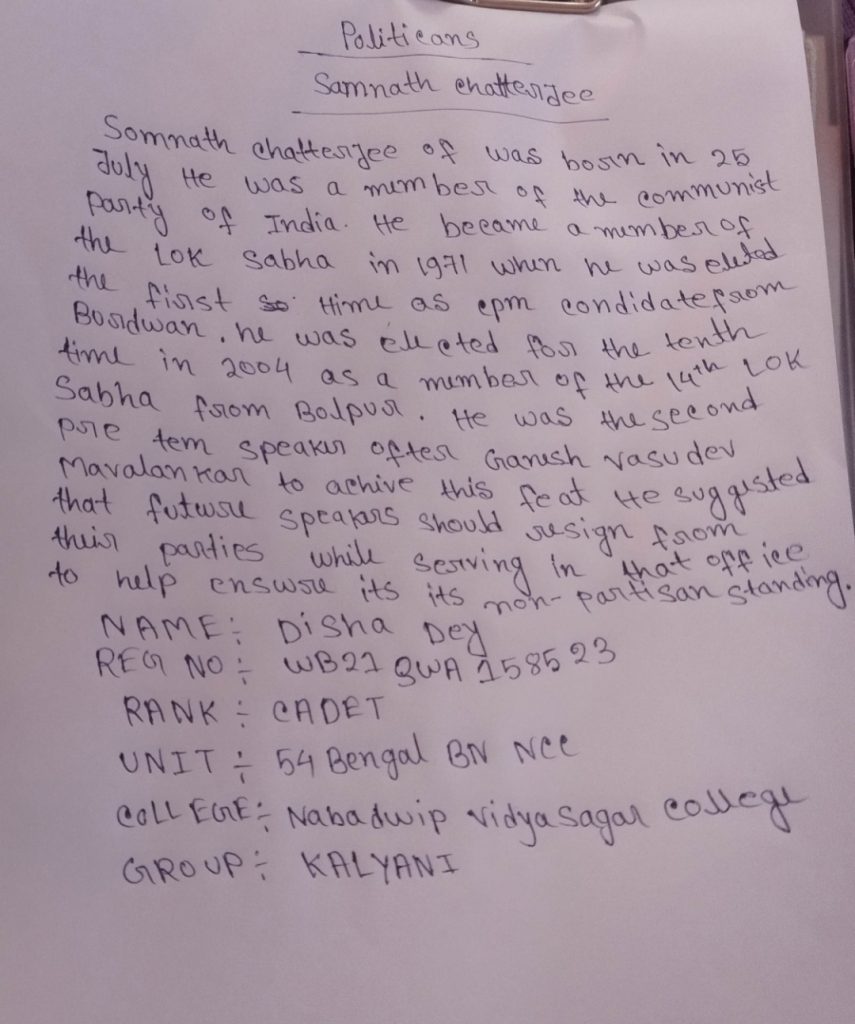 Politicans
Samnath chatterjee
Somnath chatterjee of was born in 25
July He was a member of the communist
party of India. He became a member of
the LOK Sabha in 1971 when he was eleted
the first time as cpm condidate from
Bordwan. he was elected for the tenth
time in 2004 as a member of the 14th LOK
Sabha from Bolpur. He was the second
pre tem speaker ofter Ganesh vasudev
Mavalankar to achive this feat He suggested
that future speakars should resign from
their parties while serving in that office
to help ensure its its non-partisan standing.
NAME:- Disha Dey
REG NO:- WB21 SWA 158523
RANK:- CADET
UNIT:- 54 Bengal BN NCC
COLLEGE:- Nabadwip vidyasagar college
GROUP:- KALYANI